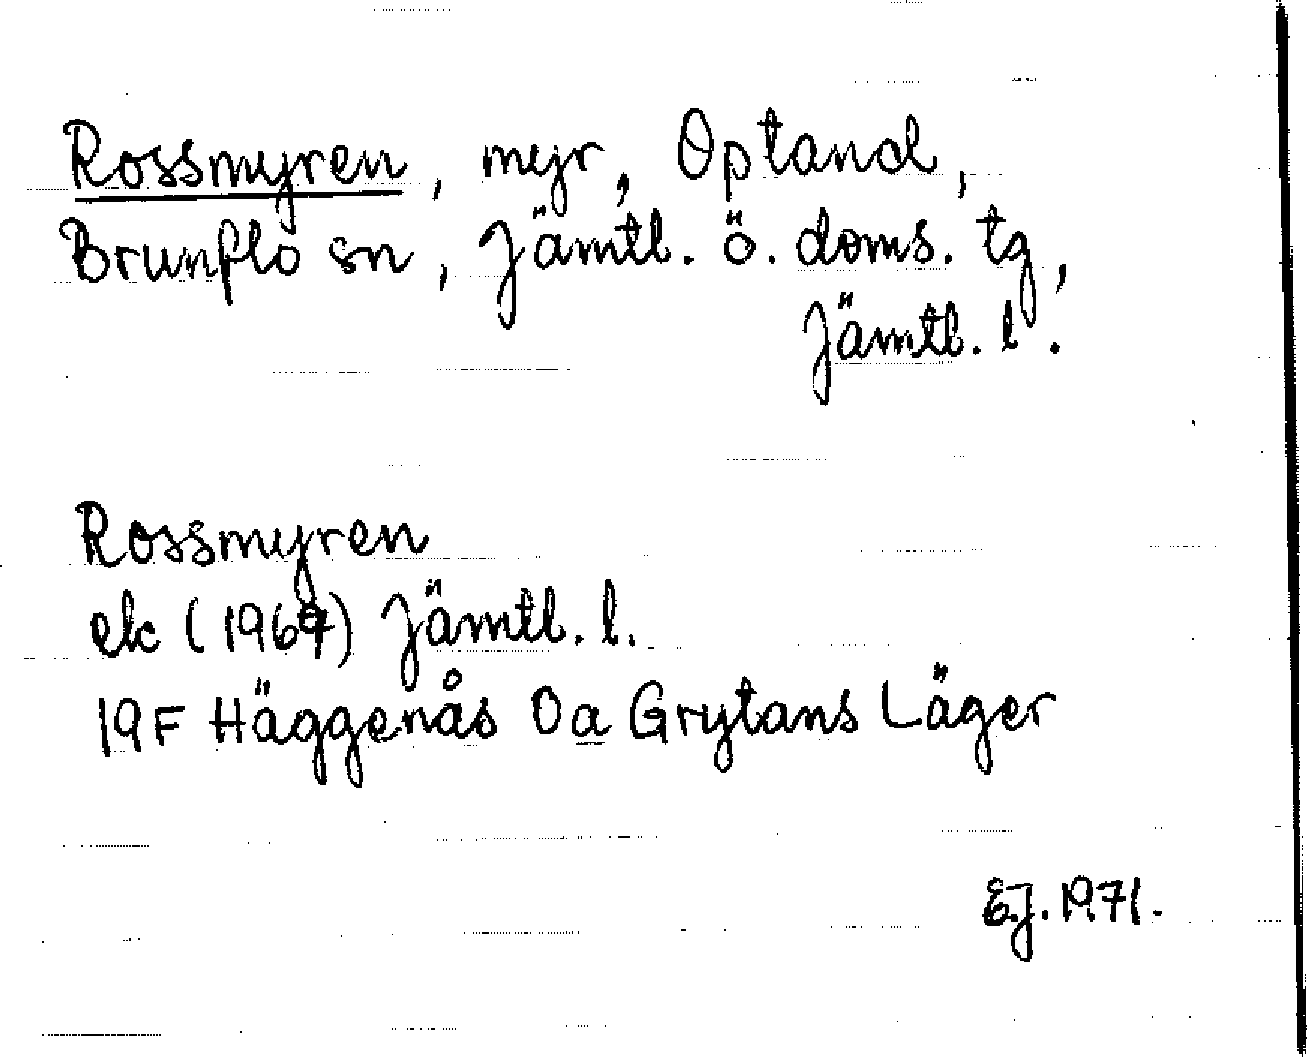 Rossmyren, myr, Optand,
Brunflo sn, Jämtl. ö. doms. tg,
Jämtl. l.
Rossmyren
ek (1969) Jämtl. l.
19F Häggenås 0a Grytans Läger
E.J. 1971.